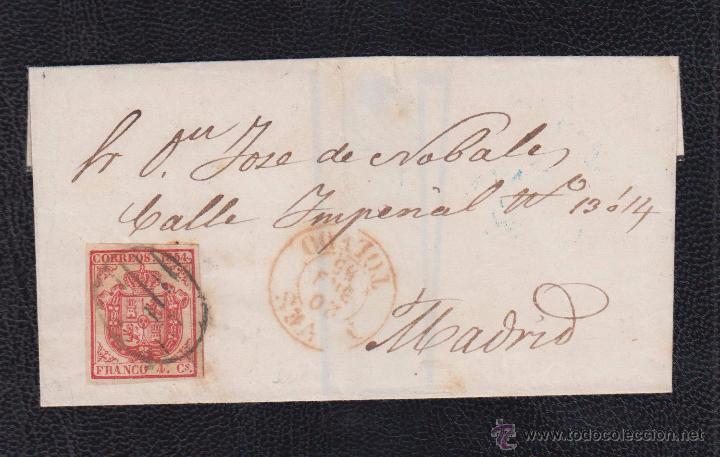 Sr Dn Jose de Nobales
Calle Imperial No 13 ó 14
Madrid
CORREOS 1854.
FRANCO 4. Cs.
TOLEDO
www.todocoleccion.net